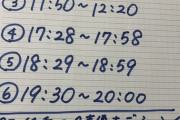 ③ 11:50~12:20
④ 17:28~17:58
⑤ 18:29~18:59
⑥ 19:30~20:00